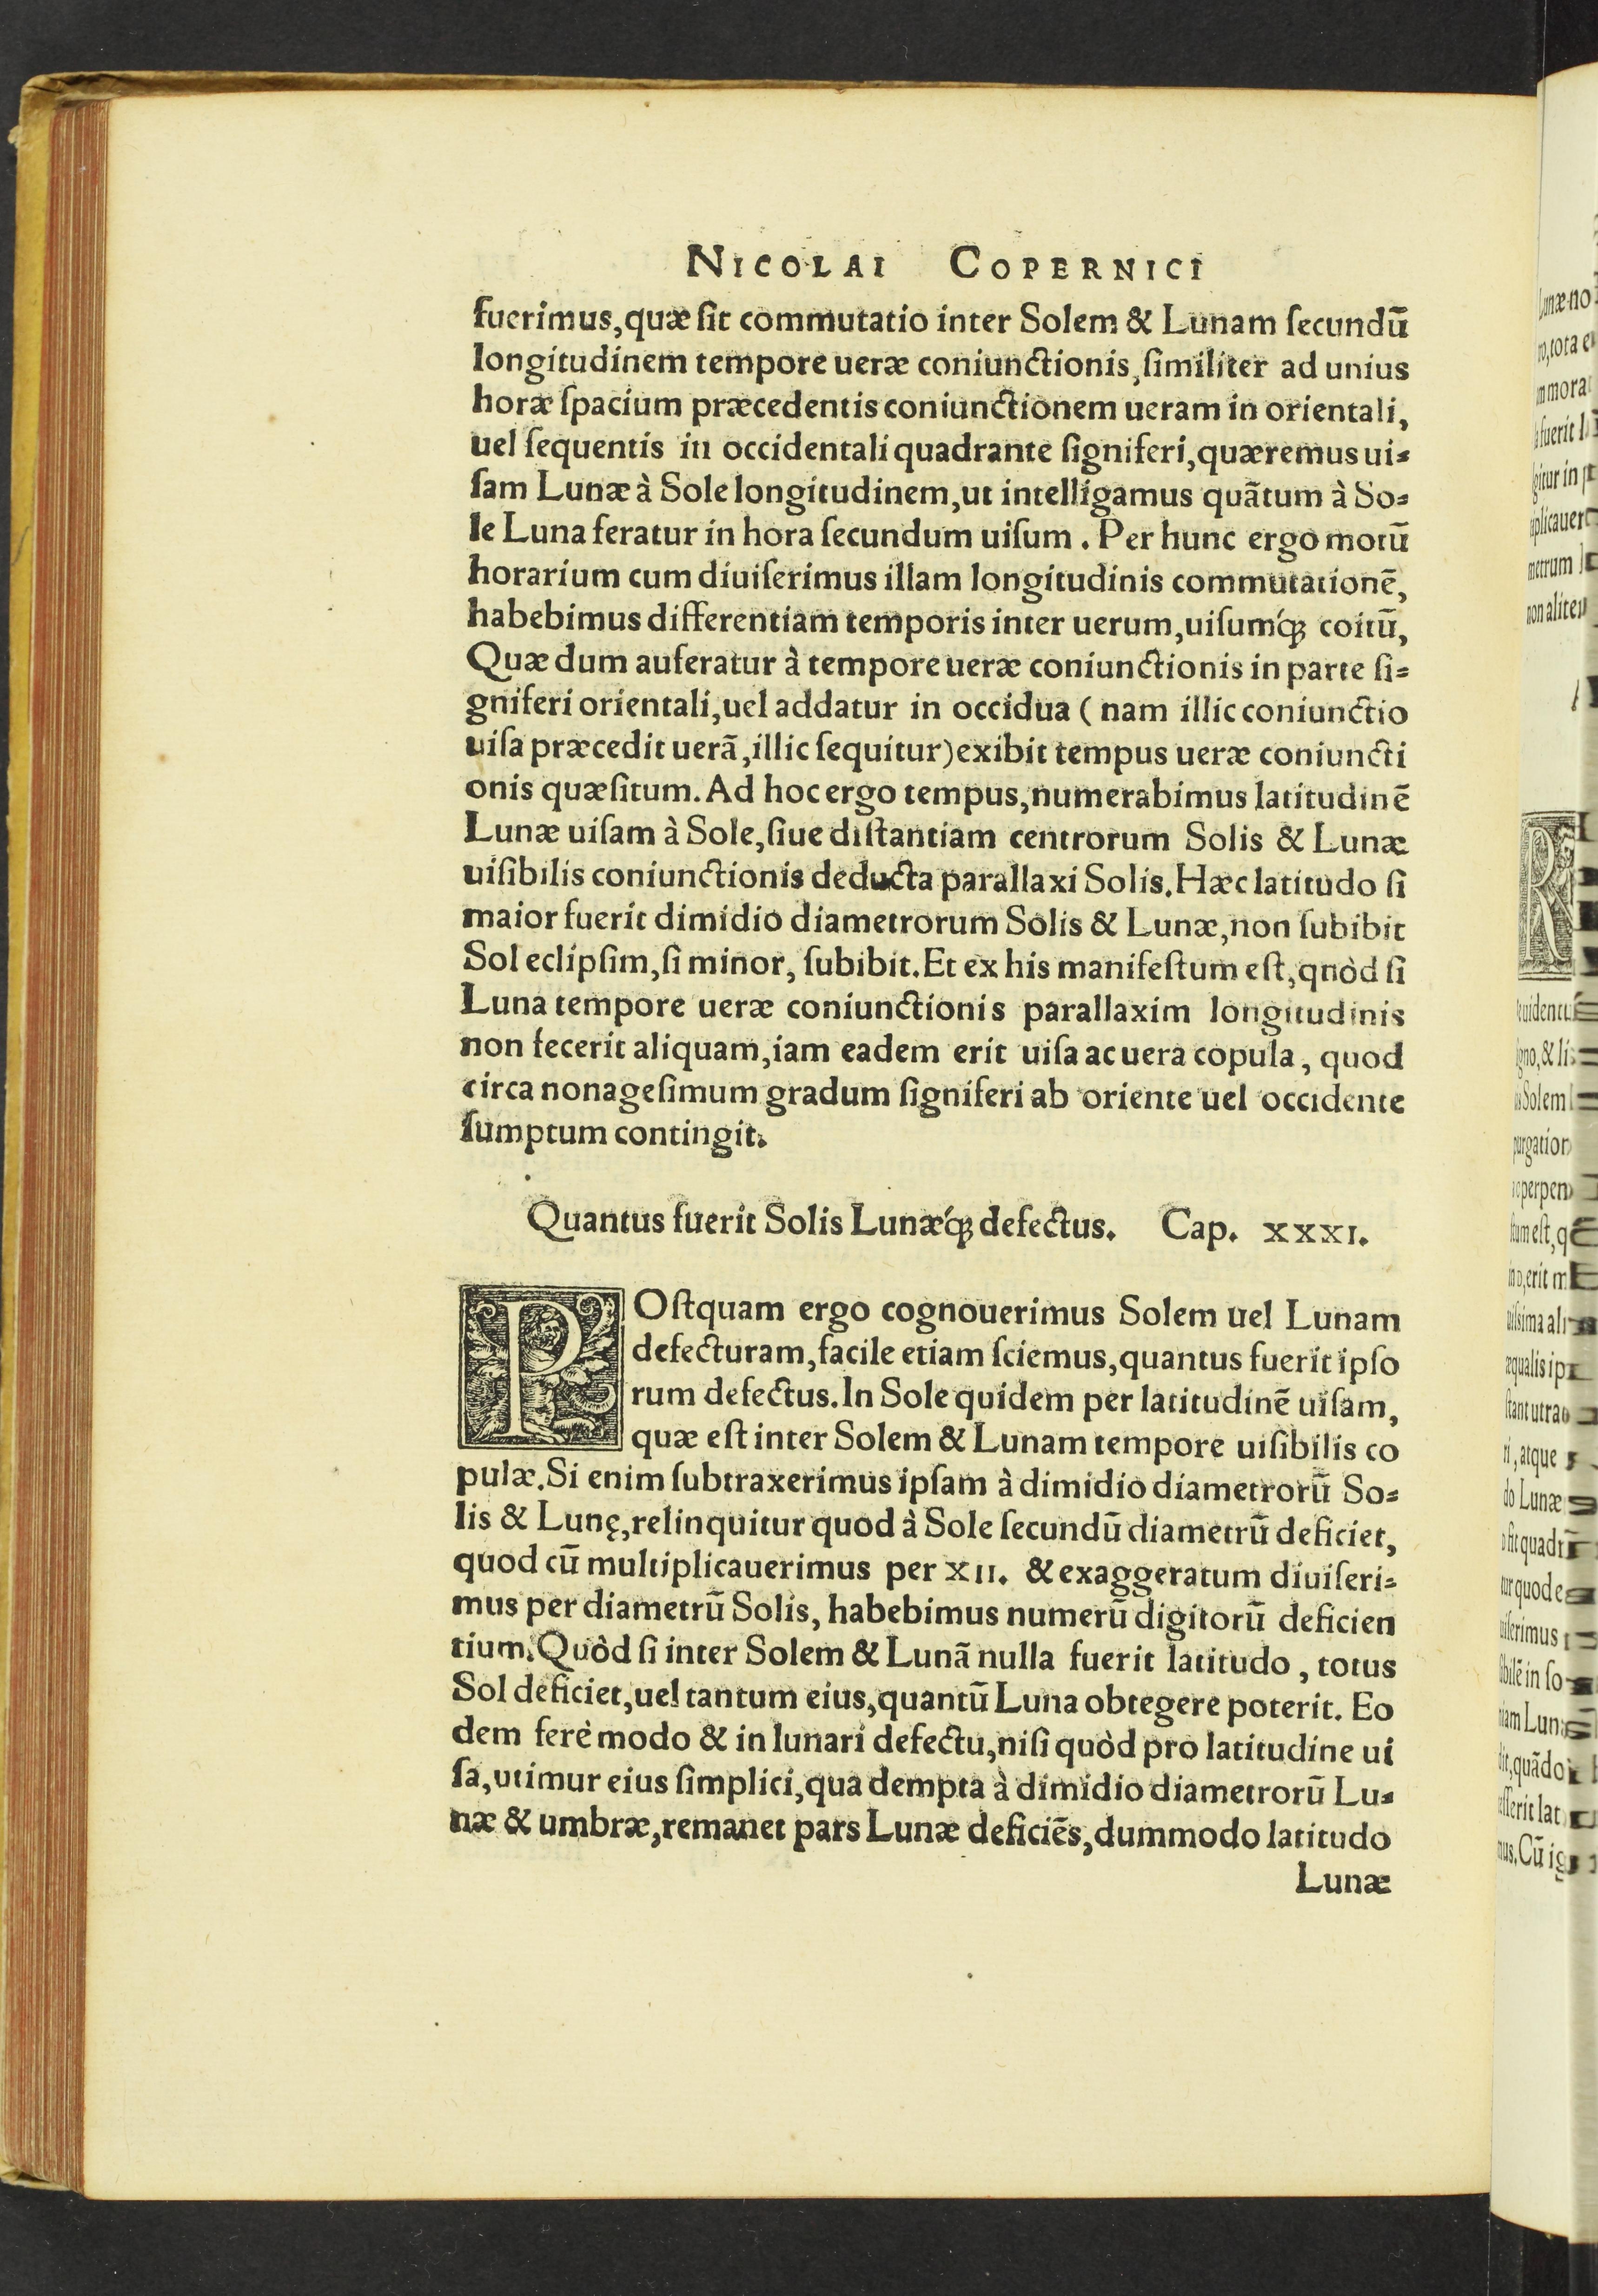 NICOLAI COPERNICI
fuerimus, quæ ſit commutatio inter Solem & Lunam ſecundū
longitudinem tempore ueræ coniunctionis, ſimiliter ad unius
horæ ſpacium præcedentis coniunctionem ueram in orientali,
uel ſequentis in occidentali quadrante ſigniferi, quæremus ui⸗
ſam Lunæ à Sole longitudinem, ut intelligamus quãtum à So⸗
le Luna feratur in hora ſecundum uiſum. Per hunc ergo motū
horarium cum diuiſerimus illam longitudinis commutationē,
habebimus differentiam temporis inter uerum, uiſumq́ꝫ coitū,
Quæ dum auferatur à tempore ueræ coniunctionis in parte ſi⸗
gniferi orientali, uel addatur in occidua ( nam illic coniunctio
uiſa præcedit uerã, illic ſequitur) exibit tempus ueræ coniuncti
onis quæſitum. Ad hoc ergo tempus, numerabimus latitudinē
Lunæ uiſam à Sole, ſiue diſtantiam centrorum Solis & Lunæ
uiſibilis coniunctionis deducta parallaxi Solis. Hæc latitudo ſi
maior fuerit dimidio diametrorum Solis & Lunæ, non ſubibit
Sol eclipſim, ſi minor, ſubibit. Et ex his manifeſtum eſt, qnòd ſi
Luna tempore ueræ coniunctionis parallaxim longitudinis
non fecerit aliquam, iam eadem erit uiſa ac uera copula, quod
circa nonageſimum gradum ſigniferi ab oriente uel occidente
ſumptum contingit.
Quantus fuerit Solis Lunæq́ꝫ defectus. Cap. XXXI.
POſtquam ergo cognouerimus Solem uel Lunam
defecturam, facile etiam ſciemus, quantus fuerit ipſo
rum defectus. In Sole quidem per latitudinē uiſam,
quæ eſt inter Solem & Lunam tempore uiſibilis co
pulæ. Si enim ſubtraxerimus ipſam à dimidio diametrorū So⸗
lis & Lunę, relinquitur quod à Sole ſecundū diametrū deficiet,
quod cū multiplicauerimus per XII. & exaggeratum diuiſeri⸗
mus per diametrū Solis, habebimus numerū digitorū deficien
tium. Quòd ſi inter Solem & Lunã nulla fuerit latitudo, totus
Sol deficiet, uel tantum eius, quantū Luna obtegere poterit. Eo
dem ferè modo & in lunari defectu, niſi quòd pro latitudine ui
ſa, utimur eius ſimplici, qua dempta à dimidio diametrorū Lu⸗
næ & umbræ, remanet pars Lunæ deficiēs, dummodo latitudo
Lunæ